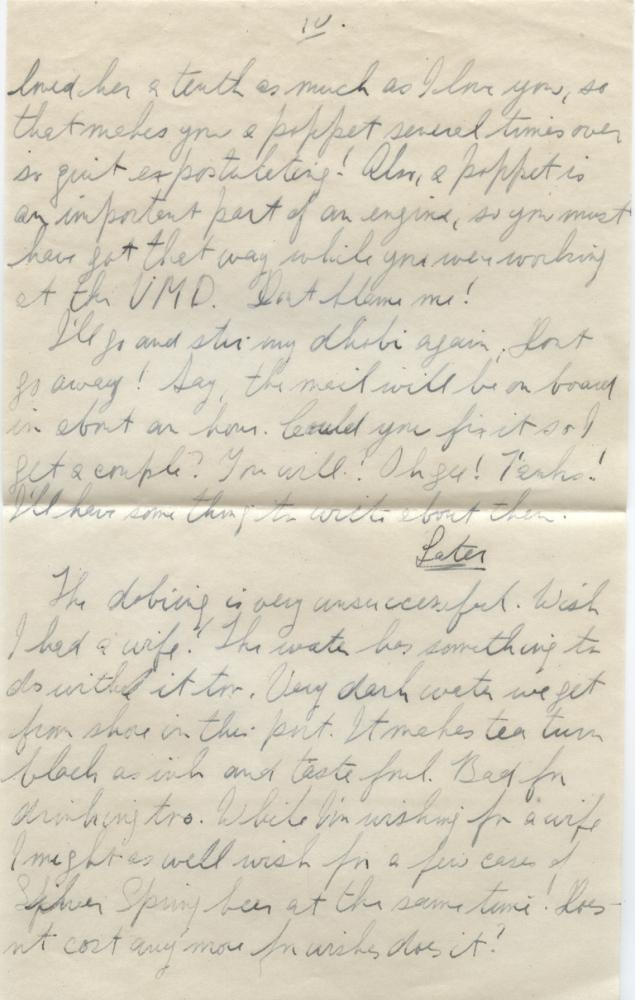 IV.
loved her a tenth as much as I love you, so
that makes you a poppet several times over
so quit expostulating! Also, a poppet is
an important part of an engine, so you must
have got that way while you were working
at the VMD. Dont blame me!
I'll go and stir my dhobi again. Dont
go away! Say, the mail will be on board
in about an hour. Could you fix it so I
get a couple? You will? Oh gee! Tanks!
I'll have some thing to write about then.
Later
The dobiing is very unsuccessful. Wish
I had a wife! The water has something to
do with it too. Very dark water we get
from shore in this port. It makes tea turn
black as ink and taste foul. Bad for
drinking too. While I'm wishing for a wife
I might as well wish for a few cases of
Silver Spring beer at the same time! Does-
nt cost any more for wishes does it?